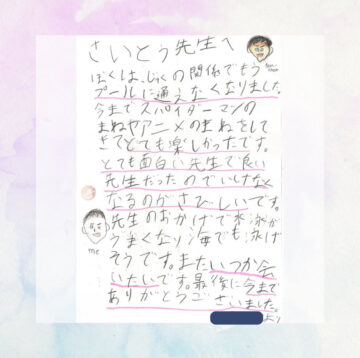 さいとう先生へ
ぼくは、じゅくの関係でもう
プールに通えなくなりました。
今までスパイダーマンの
まねやアニメのまねをして
きてとても楽しかったです。
とても面白い先生で良い
先生だったのでいけなく
なるのがさびしいです。
先生のおかげで水泳が
うまくなり海でも泳げ
そうです。またいつか会
いたいです。最後に今まで
ありがとうございました。
より
me